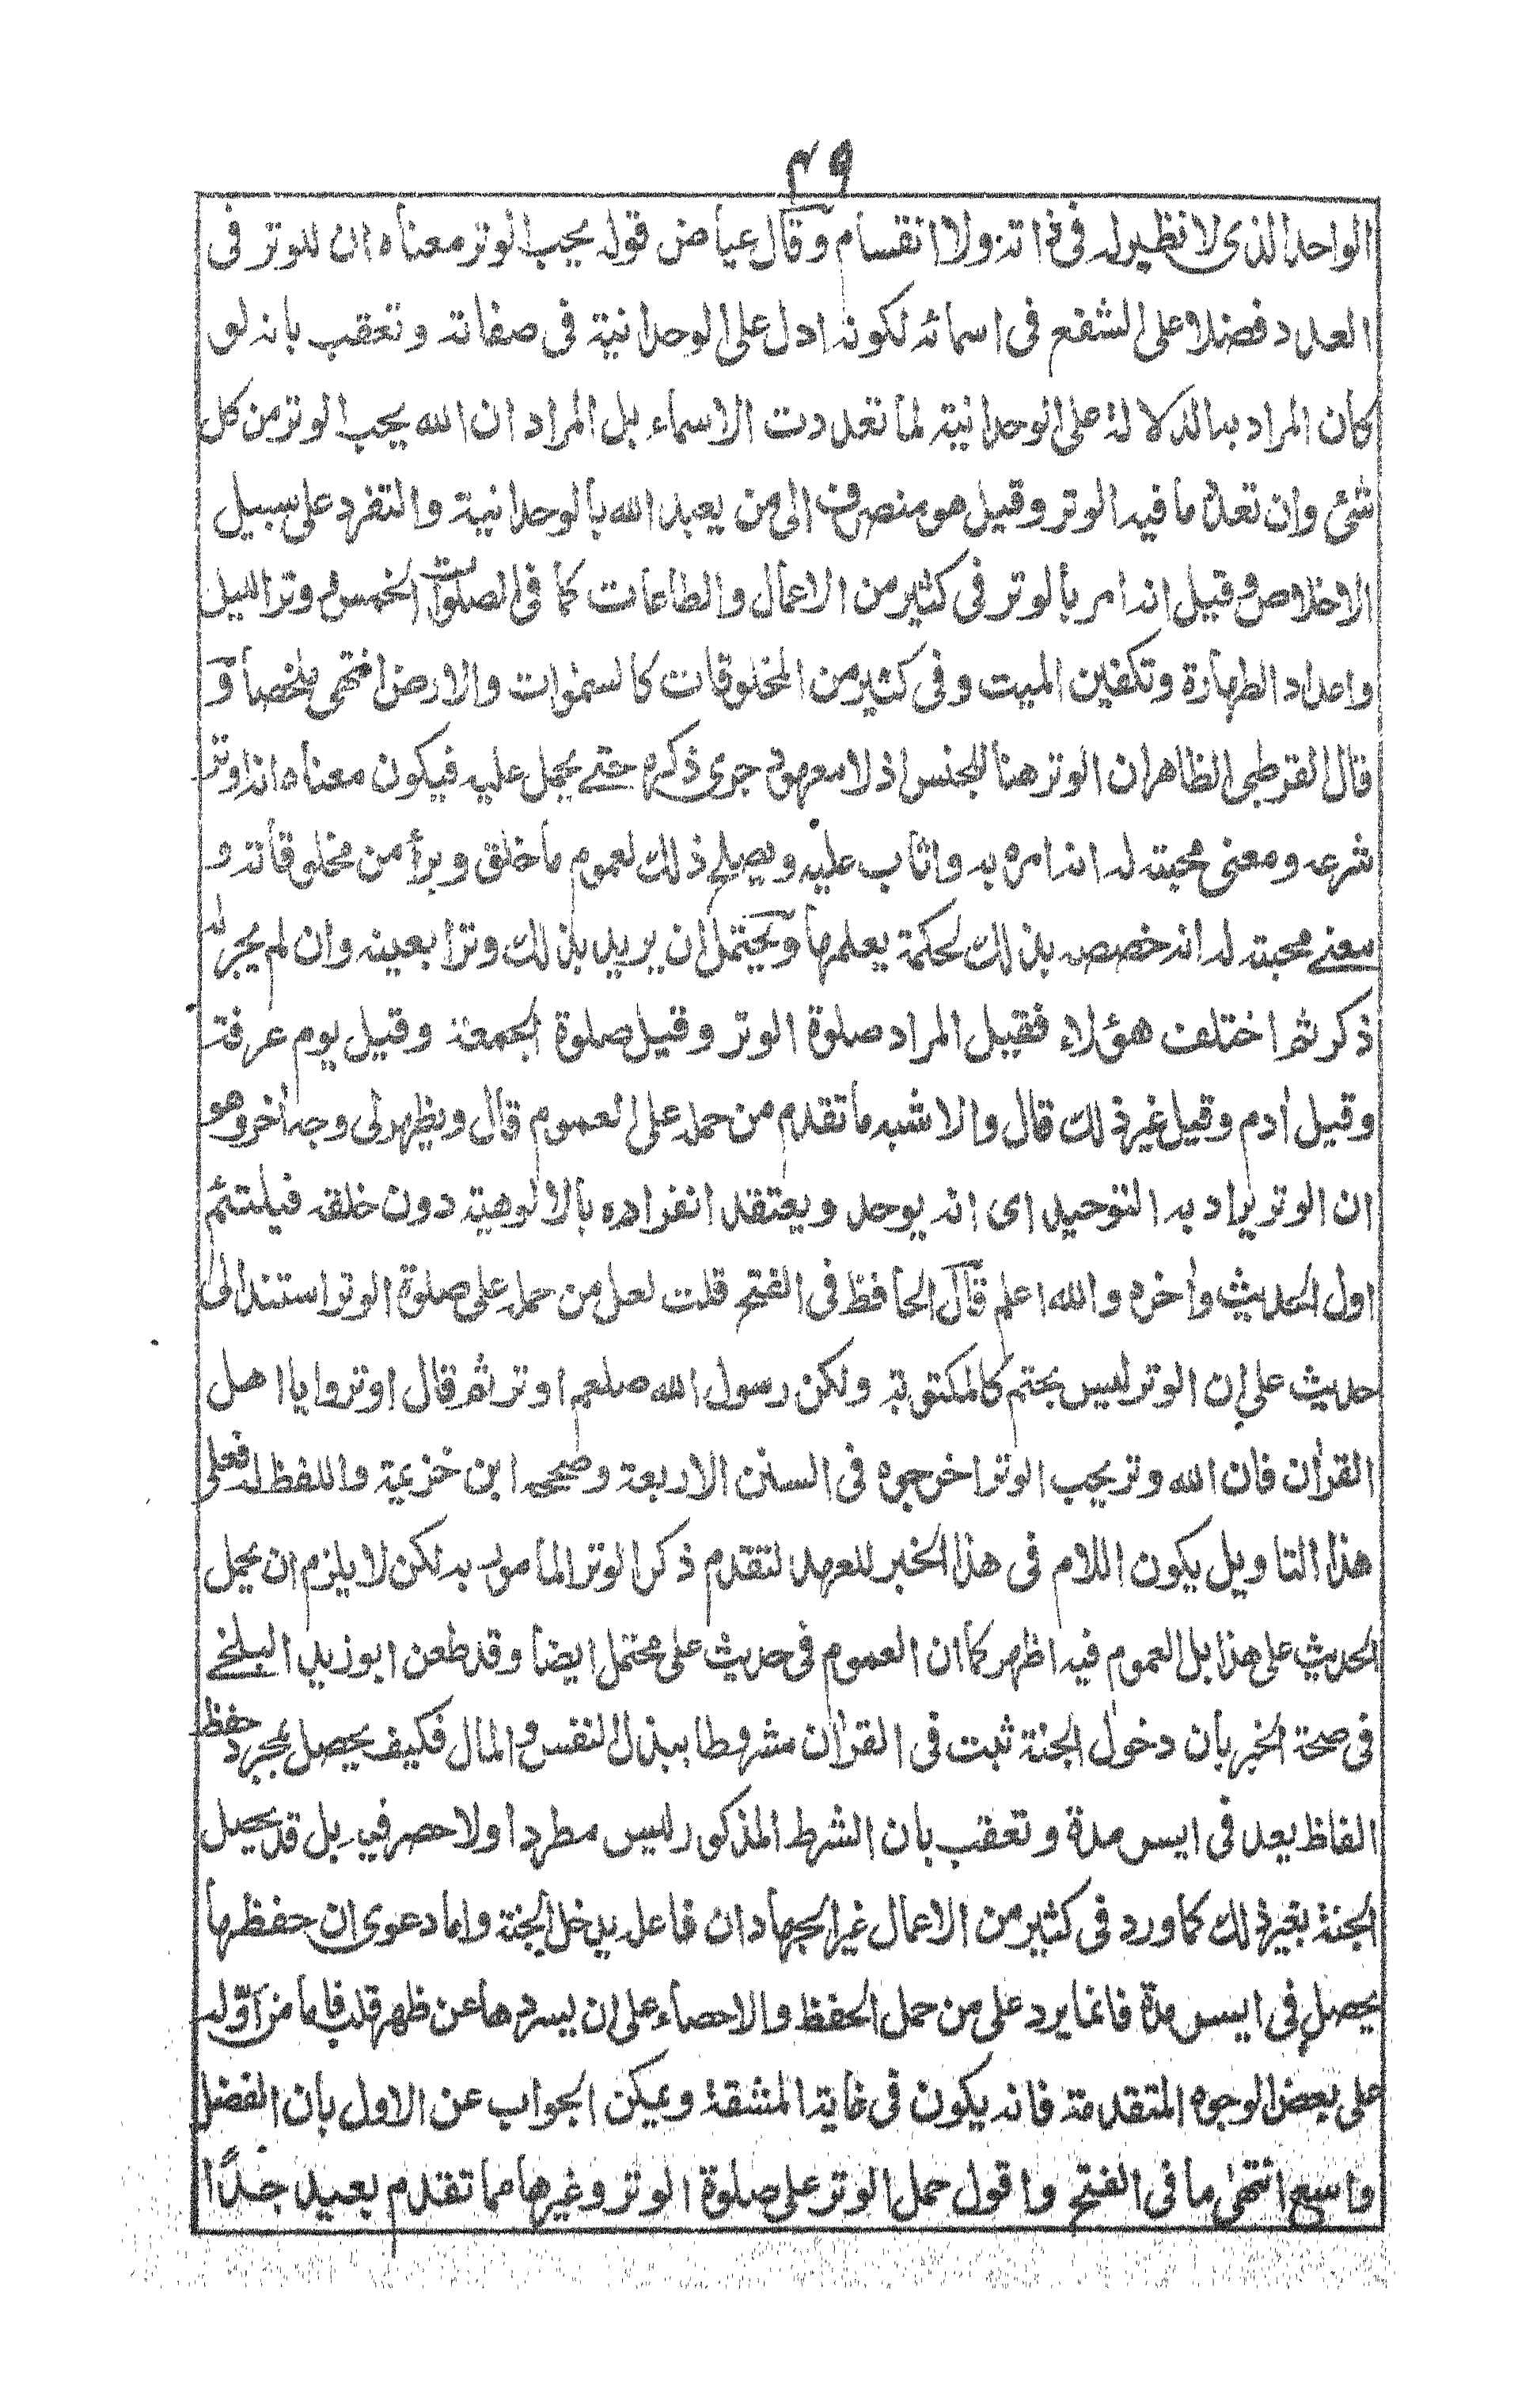 ٤٩
الواحد الذى لا نظير له فى ذاته ولا انقسام وقال عياض قوله يحب الوتر معناه ان للوتر فى
العدد فضلا على الشفع فى اسمائه لكونه ادل على الوحدانية فى صفاته وتعقب بانه لو
كان المراد به الدلالة على الوحدانية لما تعددت الاسماء بل المراد ان الله يحب الوتر من كل
شئ وان تعدد ما فيه الوتر وقيل هو منصرف الى من يعبد الله بالوحدانية والتفرد على سبيل
الاخلاص وقيل انه امر بالوتر فى كثير من الاعمال والطاعات كما فى الصلوات الخمس ووتر الليل
واعداد الطهارة وتكفين الميت وفى كثير من المخلوقات كالسموات والارض انتهى ملخصا و
قال القرطبى الظاهر ان الوتر هنا للجنس اذ لا معهود جرى ذكره حتى يحمل عليه فيكون معناه انه وتر
شرعه ومعنى محبته له انه امره به واثاب عليه ويصلح ذلك لعموم ما خلق وبرأ من مخلوقاته و
معنى محبته له انه خصصه بذلك لحكمة يعلمها ويحتمل ان يريد بذلك وترا بعينه وان لم يجر له
ذكر ثم اختلف هؤلاء فقيل المراد صلوة الوتر وقيل صلوة الجمعة وقيل يوم عرفة
وقيل أدم وقيل غير ذلك قال والاشبه ما تقدم من حمله على العموم قال ويظهر لى وجه أخر وهو
ان الوتر يراد به التوحيد اى انه يوحد ويعتقد انفراده بالالوهية دون خلقه فيلتئم
اول الحديث وأخره والله اعلم قال الحافظ فى الفتح قلت لعل من حمله على صلوة الوتر استند الى
حديث على ان الوتر ليس بحتم كالمكتوبة ولكن رسول الله صلعم اوتر ثم قال اوتروا يا اهل
القرأن فان الله وتر يحب الوتر اخرجوه فى السنن الاربعة وصححه ابن خزيمة واللفظ له فعلى
هذا التاويل يكون اللام فى هذا الخبر للعهد لتقدم ذكر الوتر المامور به لكن لا يلزم ان يحمل
الحديث على هذا بل العموم فيه اظهر كما ان العموم فى حديث على محتمل ايضا وقد طعن ابو زيد البلخى
فى صحة الخبر بان دخول الجنة ثبت فى القرأن مشروطا ببذل النفس والمال فكيف يحصل بمجرد حفظ
الفاظ يعد فى ايسر مدة وتعقب بان الشرط المذكور ليس مطردا ولا حصر فيه بل قد يحصل
الجنة بغير ذلك كما ورد فى كثير من الاعمال غير الجهاد ان فاعله يدخل الجنة واما دعوى ان حفظها
يحصل فى ايسر مدة فانما يرد على من حمل الحفظ والاحصاء على ان يسردها عن ظهر قلب فاما من اوّله
على بعض الوجوه المتقدمة فانه يكون فى غاية المشقة ويمكن الجواب عن الاول بان الفضل
واسع انتهى ما فى الفتح واقول حمل الوتر على صلوة الوتر وغيرها مما تقدم بعيد جدًا